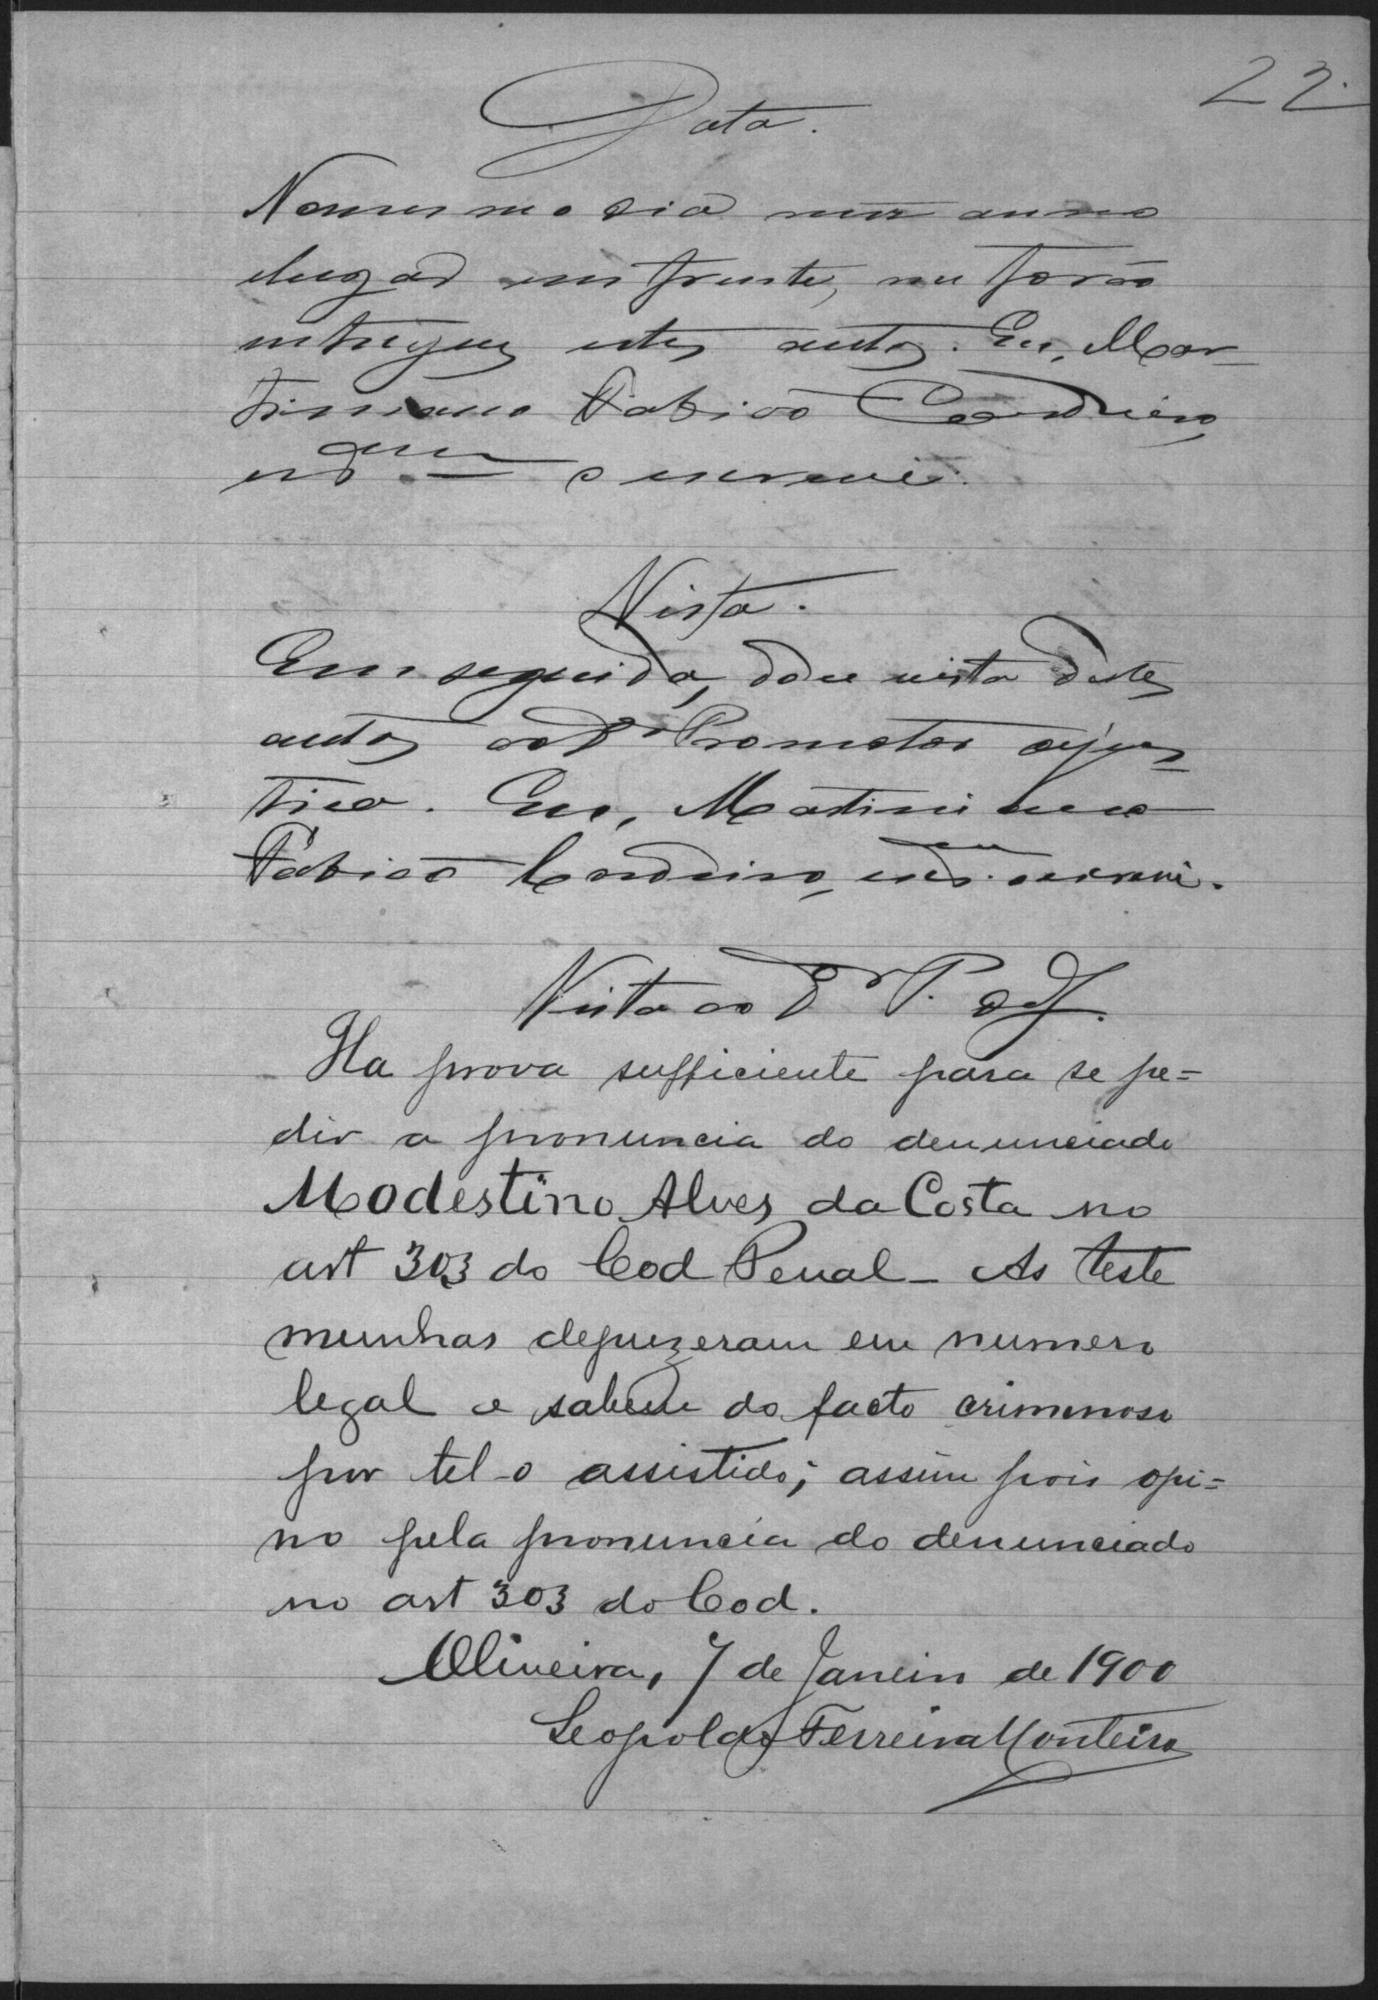 22
Data.
No mesmo dia mez anno
e lugar em frente, me forão
entregues estes autos. Eu, Mar-
timiano Fabião Cordeiro,
o escrevi.
Vista.
Em seguida, dou vista destes
autos ao Dr Promotor de jus-
tiça. Eu, Martiniano
Fabião Cordeiro, o escrevi.
Vista ao Dr P. de J.
Ha prova sufficiente para se pe=
dir a pronuncia do denunciado
Modestino Alves da Costa no
art 303 do Cod Penal - As teste
munhas depuzeram em numero
legal e sabem do facto criminoso
por tel-o assistido; assim pois opi=
no pela pronuncia do denunciado
no art 303 do Cod.
Oliveira, 7 de Janeiro de 1900
Leopoldo Ferreira Monteiro